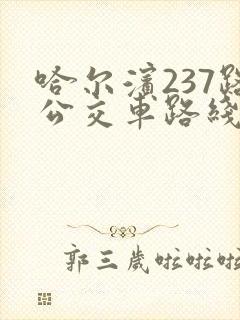 哈尔滨237路
公交车路线
郭三岁啦啦啦